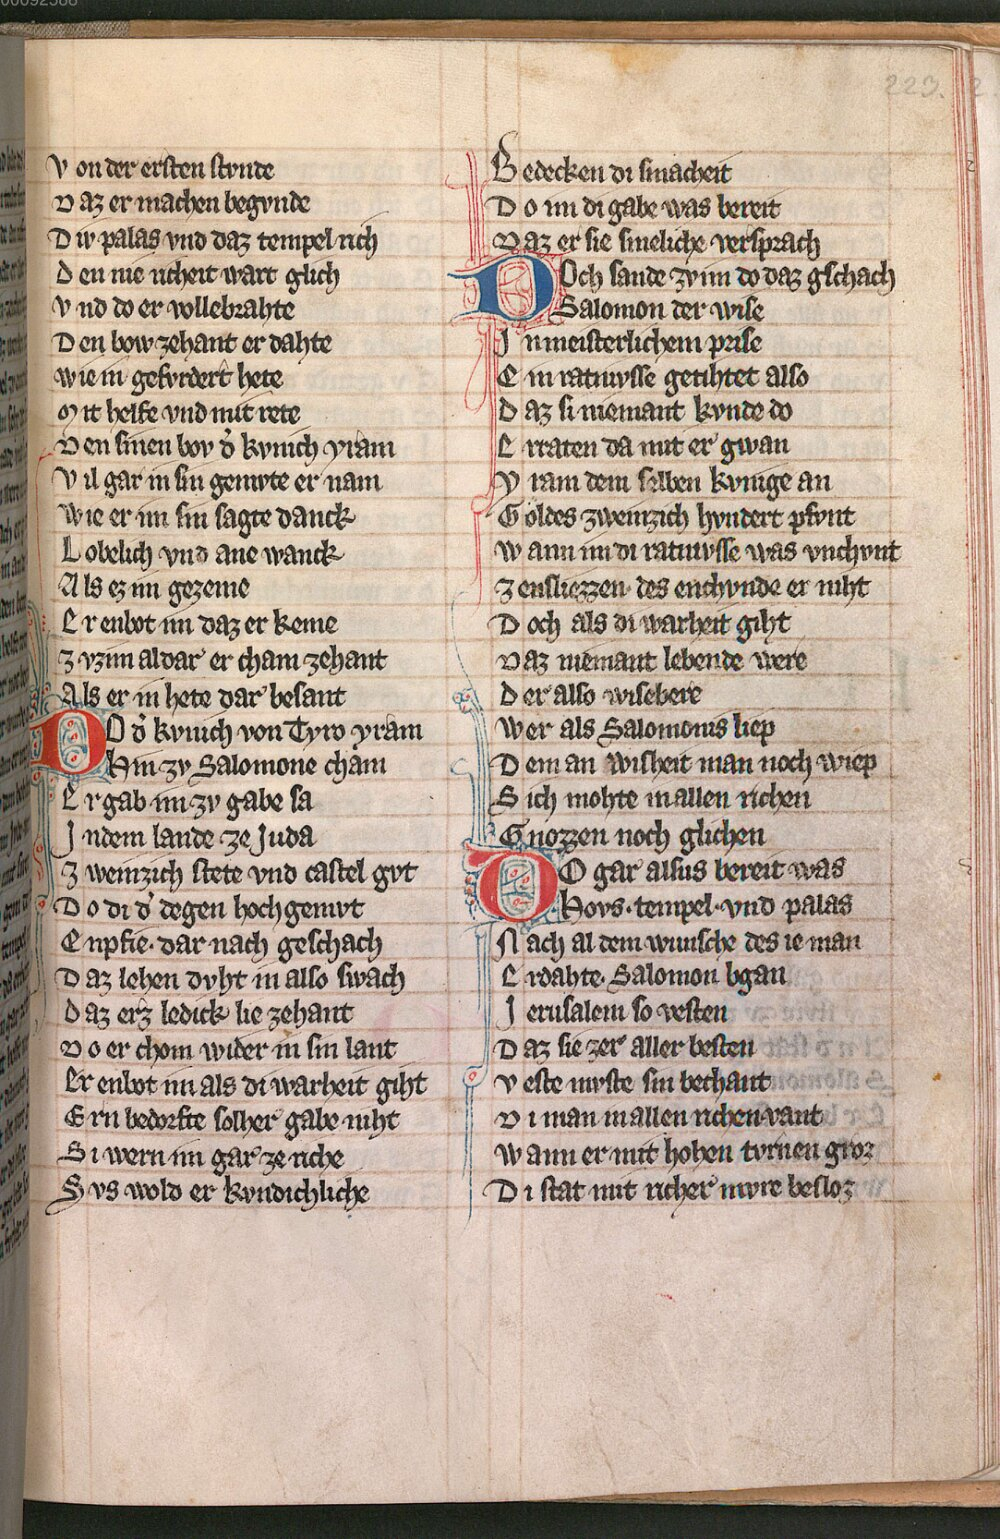 00092588
223. 2
Von der ersten stvnde
Daz er machen begvnde
Div palas vnd daz tempel rich
Den nie richeit wart glich
Vnd do er vollebrahte
Den bow zehant er dahte
Wie in gefvrdert hete
Mit helfe vnd mit rete
Den sinen bov d̓ kvnich yram
Vil gar in sin gemvte er nam
Wie er im sin sagte danck
Lobelich vnd ane wanck
Als ez im gezeme
Er enbot im daz er keme
Zv zim aldar er cham zehant
Als er in hete dar besant
DO d̓ kvnich von Tyro yram
Hin zv Salomone cham
Er gab im zv gabe sa
In dem lande ze Juda
Zweinzich stete vnd castel gvt
Do di d̓ degen hochgemvt
Enpfie. dar nach geschach
Daz lehen dvht in also swach
Daz erz ledick lie zehant
Do er chom wider in sin lant
Er enbot im als di warheit giht
Ern bedorfte solher gabe niht
Si wern im gar ze riche
Svs wold er kvndichliche
Bedecken di smacheit
Do im di gabe was bereit
Daz er sie smeliche versprach
DOch sande zv im do daz gschach
Salomon der wise
In meisterlichem prise
Ein ratnvsse getihtet also
Daz si niemant kvnde do
Erraten da mit er gwan
Yram dem selben kvnige an
Goldes zweinzich hvndert pfvnt
Wann im di ratnvsse was vnchvnt
Zensliezzen. des enchvnde er niht
Doch als di warheit giht
Daz niemant lebende were
Der also wisebere
Wer als Salomonis liep
Dem an wisheit man noch wiep
Sich mohte in allen richen
Gnozzen noch glichen
DO gar alsus bereit was
Hovs. tempel. vnd palas
Nach al dem wunsche des ie man
Erdahte. Salomon bgan
Jerusalem so vesten
Daz sie zer aller besten
Veste mvste sin bechant
Di man in allen richen vant
Wann er mit hohen tvrnen groz
Di stat mit richer mvre besloz